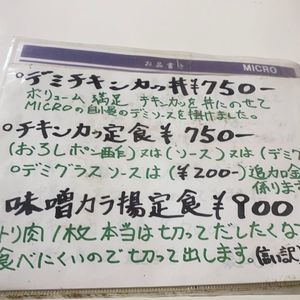 お品書き
MICRO
○デミチキンカツ丼¥750-
ボリューム満足 チキンカツを丼にのせて
MICROの自慢のデミソースを掛けました。
○チキンカツ定食¥750-
(おろしポン酢)又は(ソース)又は(デミグ
○デミグラスソースは(¥200-)追加金
係りま
味噌カラ揚定食¥900
トリ肉1枚本当は切ってだしたくな
食べにくいので切って出します。